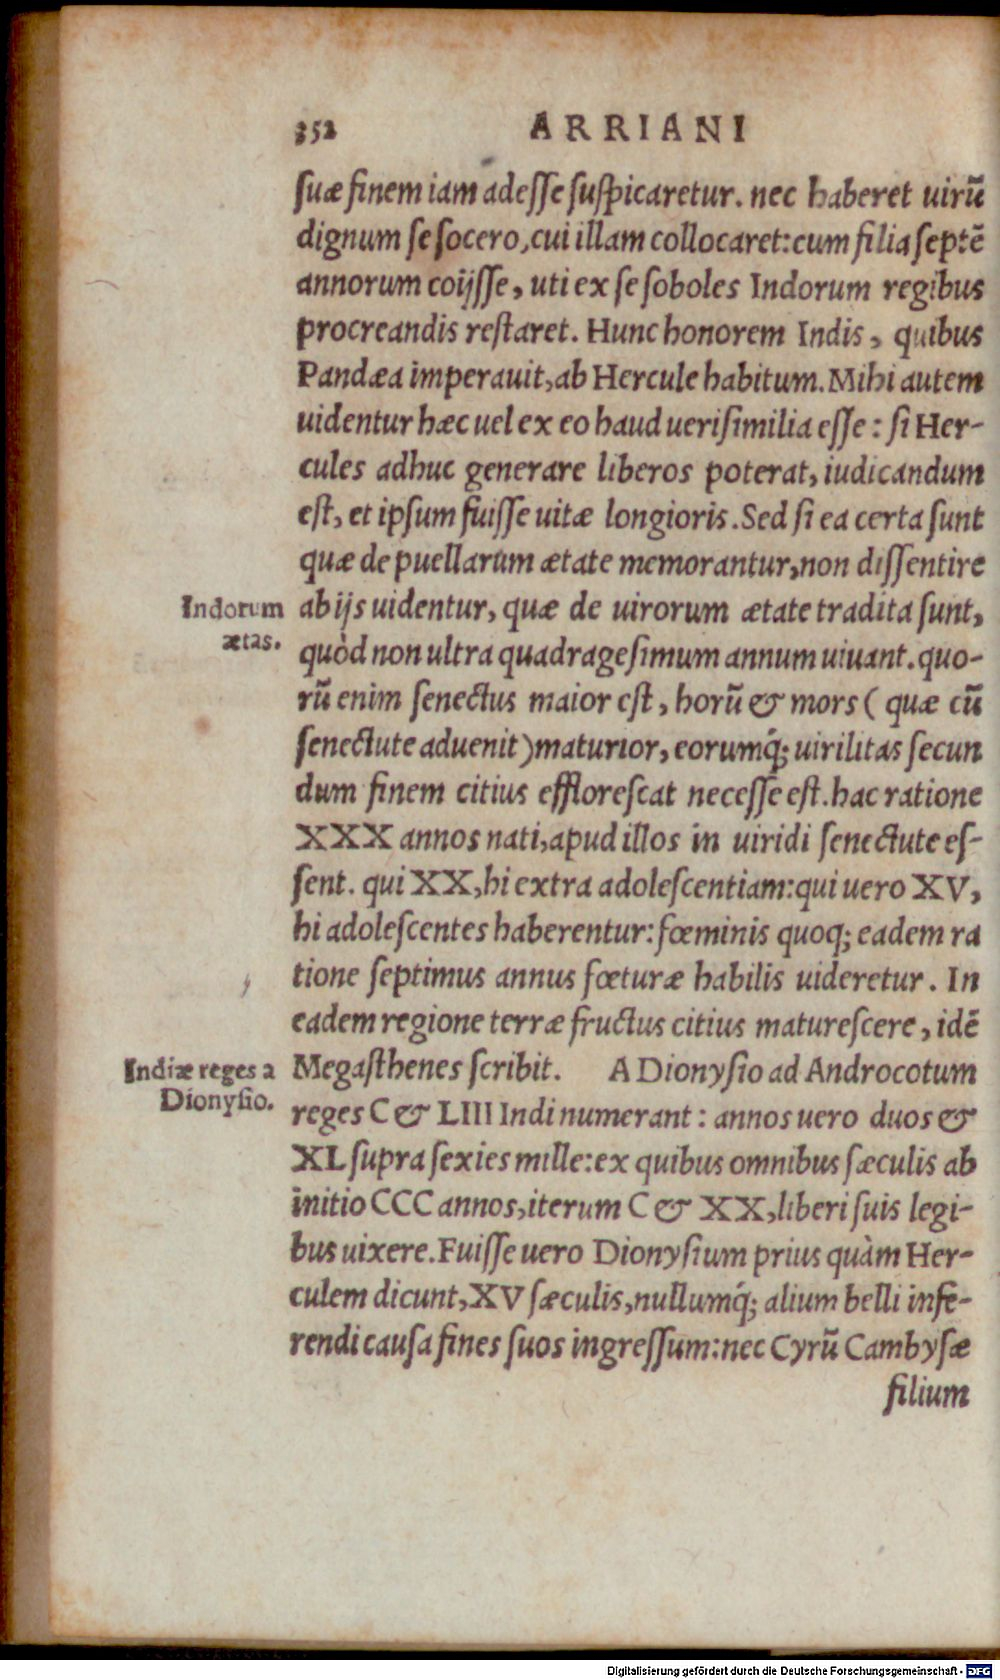 352 ARRIANI
suæ finem iam adesse suspicaretur. nec haberet uirũ
dignum se socero, cui illam collocaret: cum filia septẽ
annorum coijsse, uti ex se soboles Indorum regibus
procreandis restaret. Hunc honorem Indis, quibus
Pandæa imperauit, ab Hercule habitum. Mihi autem
uidentur hæc uel ex eo haud uerisimilia esse: si Her-
cules adhuc generare liberos poterat, iudicandum
est, et ipsum fuisse uitæ longioris. Sed si ea certa sunt
quæ de puellarum ætate memorantur, non dissentire
Indorum
ætas.
ab ijs uidentur, quæ de uirorum ætate tradita sunt,
quòd non ultra quadragesimum annum uiuant. quo-
rũ enim senectus maior est, horũ & mors ( quæ cũ
senectute aduenit ) maturior, eorumq́; uirilitas secun
dum finem citius efflorescat necesse est. hac ratione
XXX annos nati, apud illos in uiridi senectute es-
sent. qui XX, hi extra adolescentiam: qui uero XV,
hi adolescentes haberentur: fœminis quoq; eadem ra
tione septimus annus fœturæ habilis uideretur. In
eadem regione terræ fructus citius maturescere, idẽ
Indiæ reges a
Dionysio.
Megasthenes scribit. A Dionysio ad Androcotum
reges C & LIII Indi numerant: annos uero duos &
XL supra sexies mille: ex quibus omnibus sæculis ab
initio CCC annos, iterum C & XX, liberi suis legi-
bus uixere. Fuisse uero Dionysium prius quàm Her-
culem dicunt, XV sæculis, nullumq́; alium belli infe-
rendi causa fines suos ingressum: nec Cyrũ Cambysæ
filium
Digitalisierung gefördert durch die Deutsche Forschungsgemeinschaft - DFG